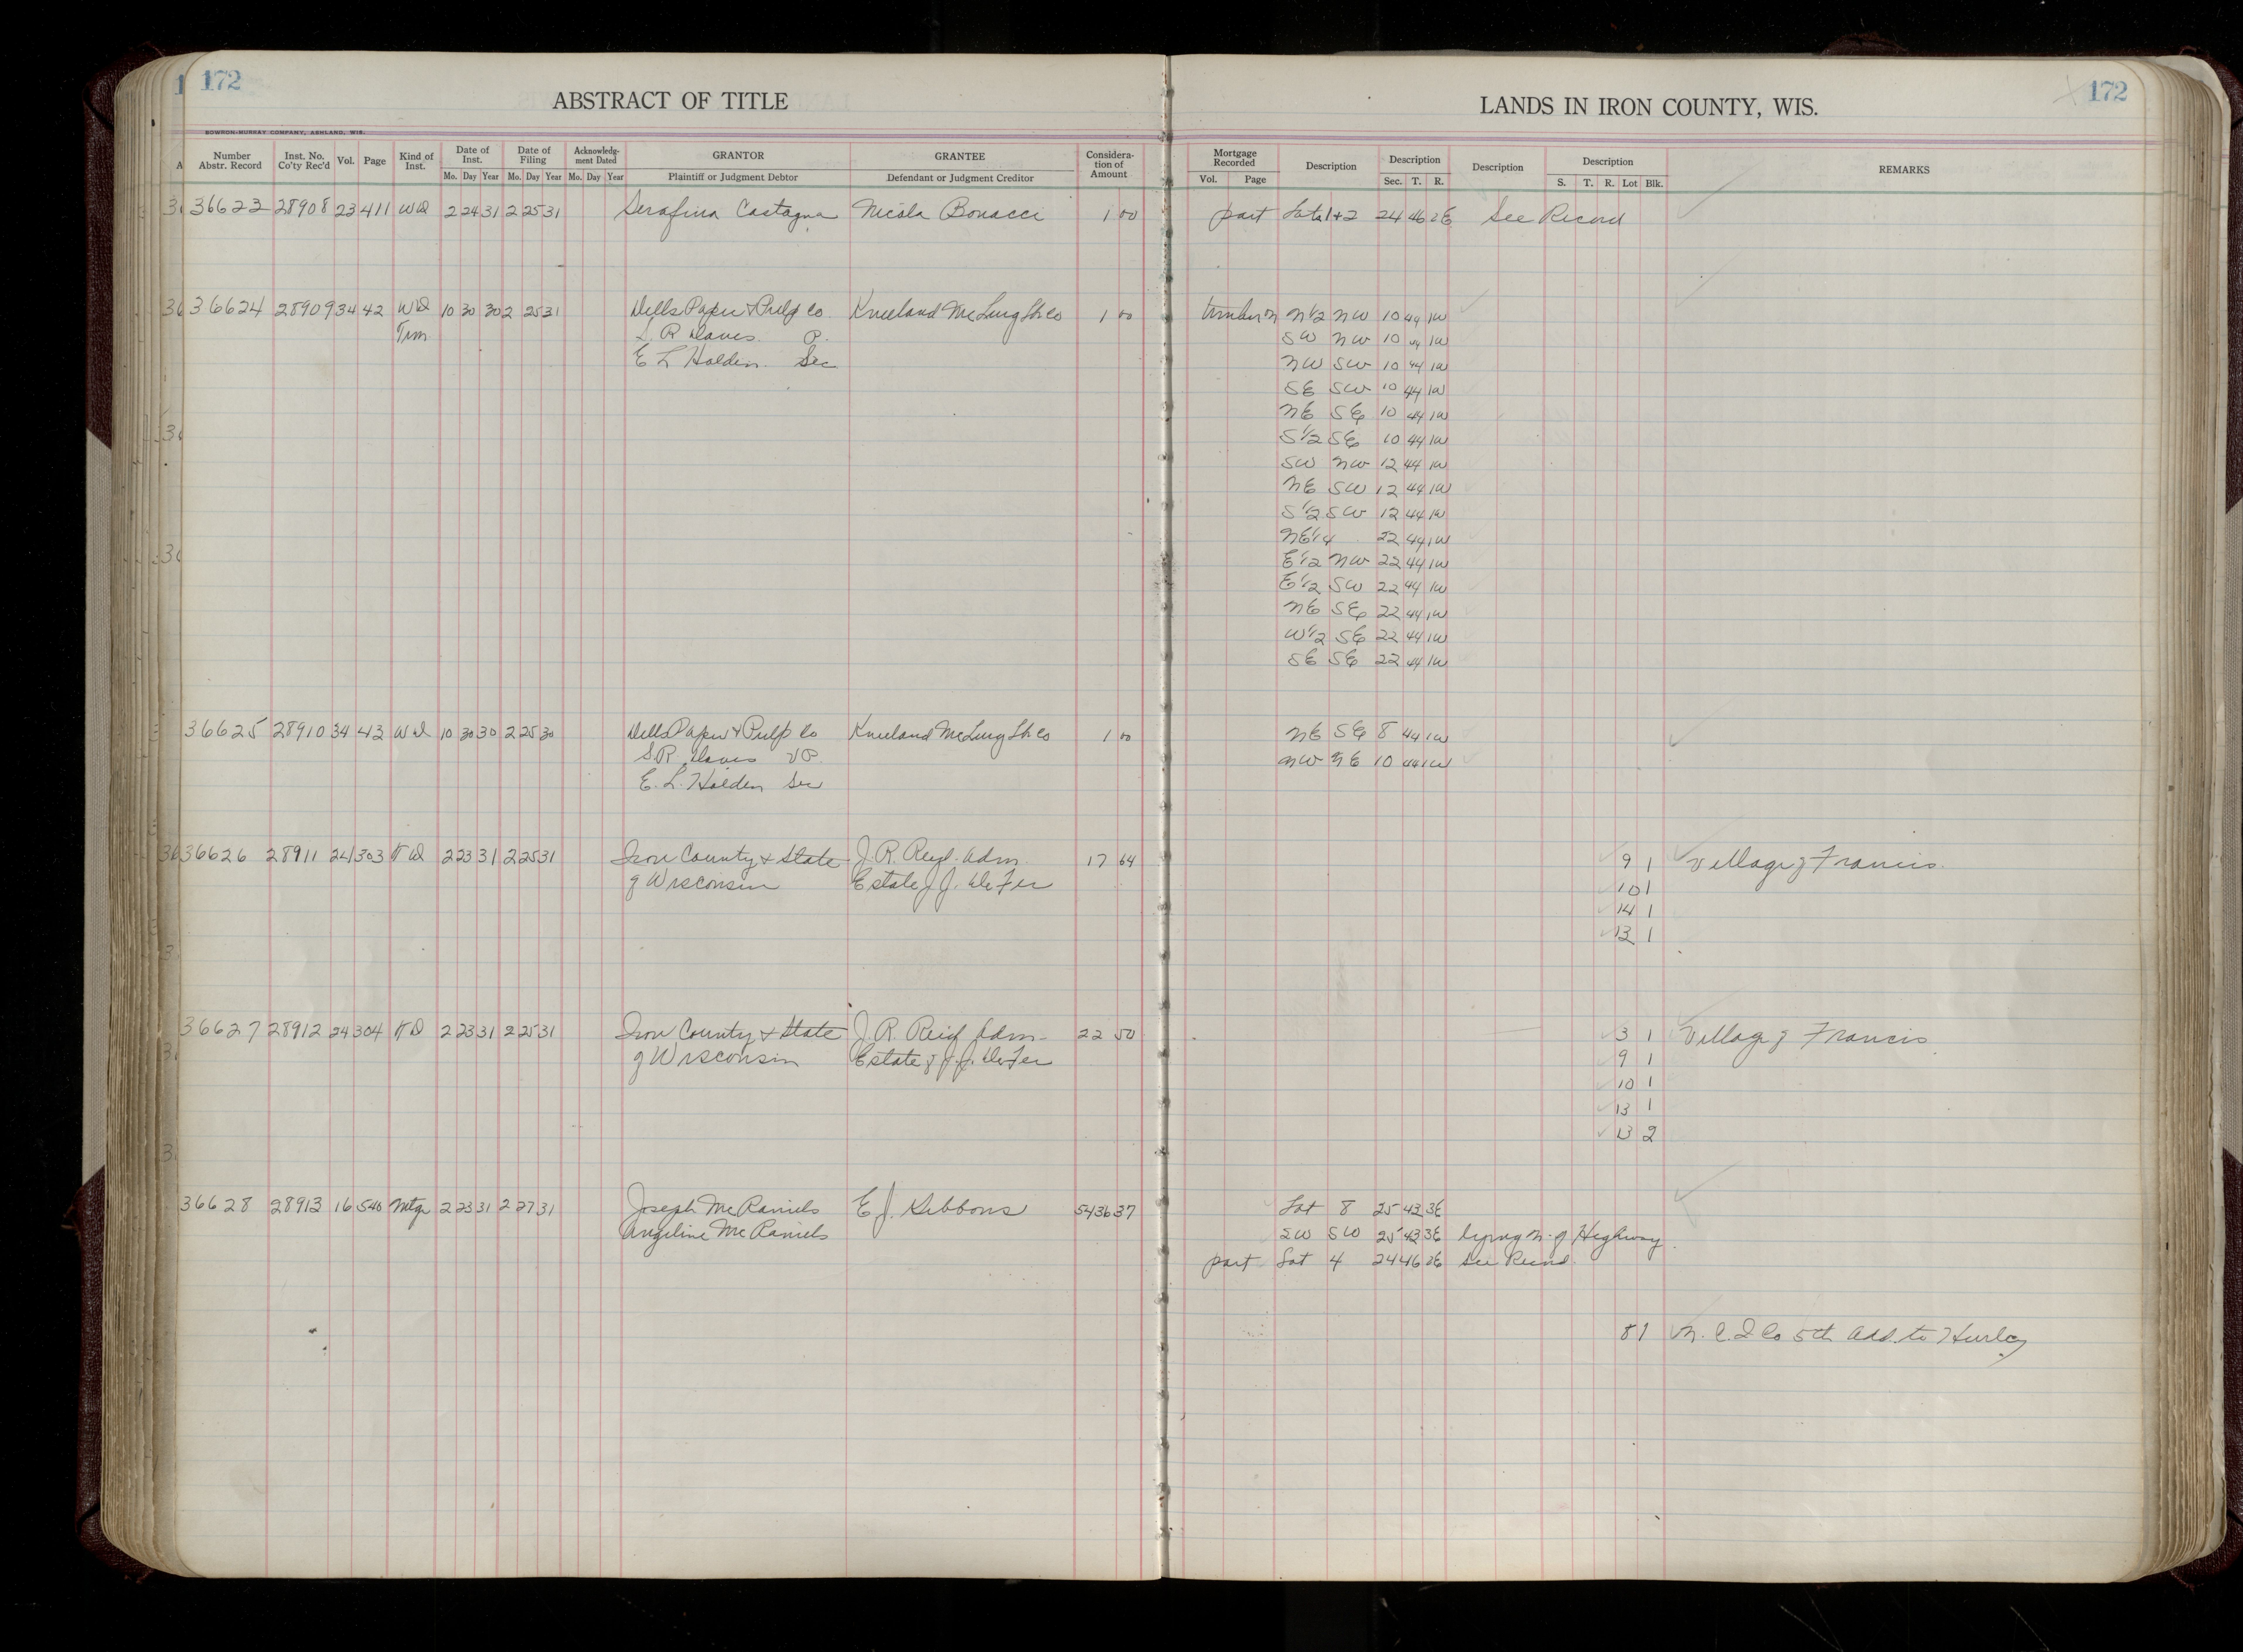 172
ABSTRACT OF TITLE
LANDS IN IRON COUNTY, WIS.
172
BOWRON-MURRAY COMPANY, ASHLAND, WIS.
Number Abstr. Record Inst. No. Co'ty Rec'd Vol. Page Kind of Inst. Date of Inst. Date of Filing Acknowledg-ment Dated GRANTOR GRANTEE Considera-tion of Amount Mortgage Recorded Description Description Description Description REMARKS
Mo. Day Year Mo. Day Year Mo. Day Year Plaintiff or Judgment Debtor Defendant or Judgment Creditor Vol. Page Sec. T. R. S. T. R. Lot Blk.
36623 28908 23 411 WD 2 24 31 2 25 31 Serafina Castagna Nicola Bonacci 1 00 part Lots 1+2 24 46 2E See Record
36624 28909 34 42 WD 10 30 30 2 25 31 Dells Paper & Pulp Co Kneeland McLurg Lbr Co 1 00 N1/2 NW 10 44 1W
Tim S. R. Davis P. SW NW 10 44 1W
E L Holden Sec NW SW 10 44 1W
SE SW 10 44 1W
NE SE 10 44 1W
S1/2 SE 10 44 1W
SW NW 12 44 1W
NE SW 12 44 1W
S1/2 SW 12 44 1W
NE1/4 22 44 1W
E1/2 NW 22 44 1W
E1/2 SW 22 44 1W
NE SE 22 44 1W
W1/2 SE 22 44 1W
SE SE 22 44 1W
36625 28910 34 43 WD 10 30 30 2 25 30 Dells Paper & Pulp Co Kneeland McLurg Lbr Co 1 00 NE SE 8 44 1W
S.R. Davis VP NW NE 10 44 1W
E. L. Holden Sec
36626 28911 24 303 TD 2 23 31 2 25 31 Iron County & State J. R. Adm. 17 64 9 1 Village of Francis
of Wisconsin Estate of J. DeFer 10 1
14 1
13 1
36627 28912 24 304 TD 2 23 31 2 25 31 Iron County & State J. R. Adm. 22 50 3 1 Village of Francis
of Wisconsin Estate of J. J. DeFer 9 1
10 1
13 1
13 2
36628 28913 16 540 Mtge 2 23 31 2 27 31 Joseph McDaniels E J. Gibbons 5436 37 Lot 8 25 43 3E
Angeline McDaniels SW SW 25 43 3E lying N. of Highway
part Lot 4 24 46 2E See Record
8 1 N. C. I Co 5th Add. to Hurley